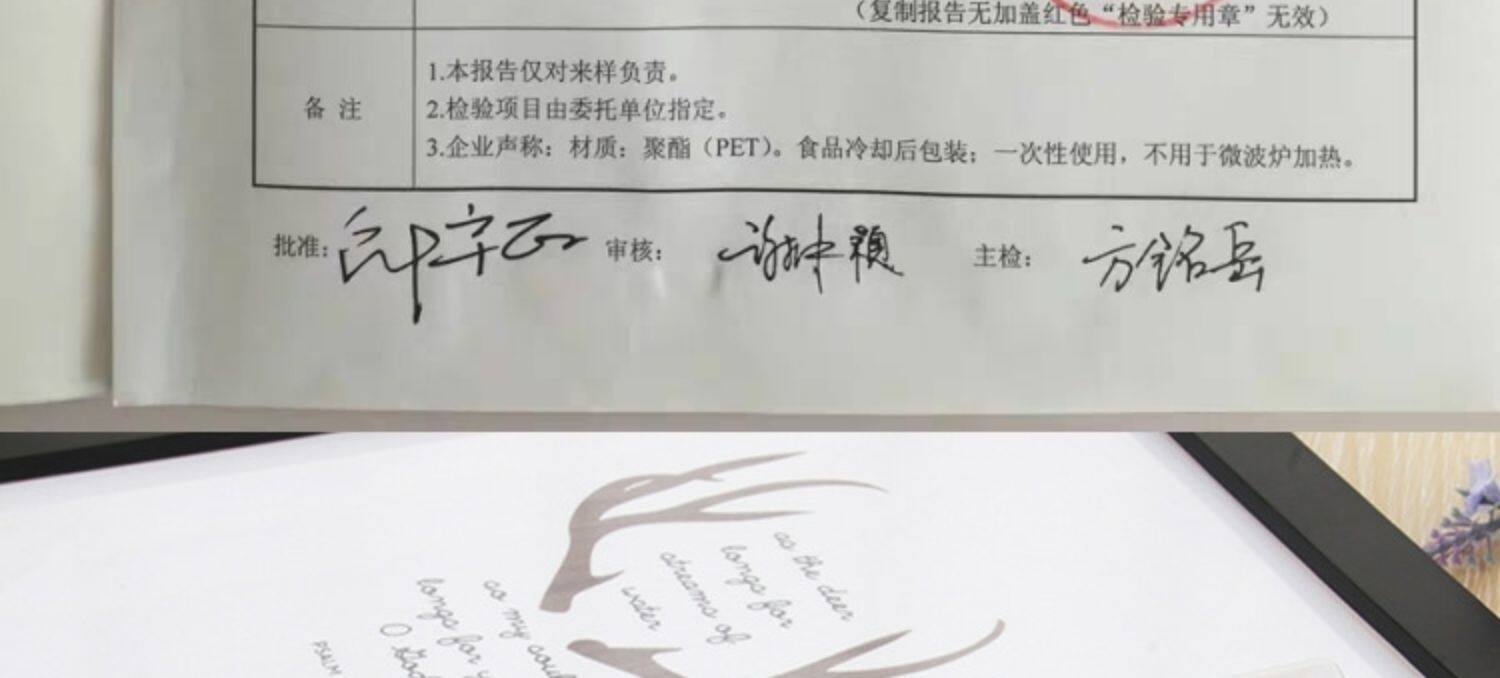 （复制报告无加盖红色“检验专用章”无效）
备 注
1.本报告仅对来样负责。
2.检验项目由委托单位指定。
3.企业声称：材质：聚酯（PET）。食品冷却后包装；一次性使用，不用于微波炉加热。
批准： 审核： 主检：方铭岳
as the deer
longs for
streams of
water
so my soul
longs for y
O God
PSALM